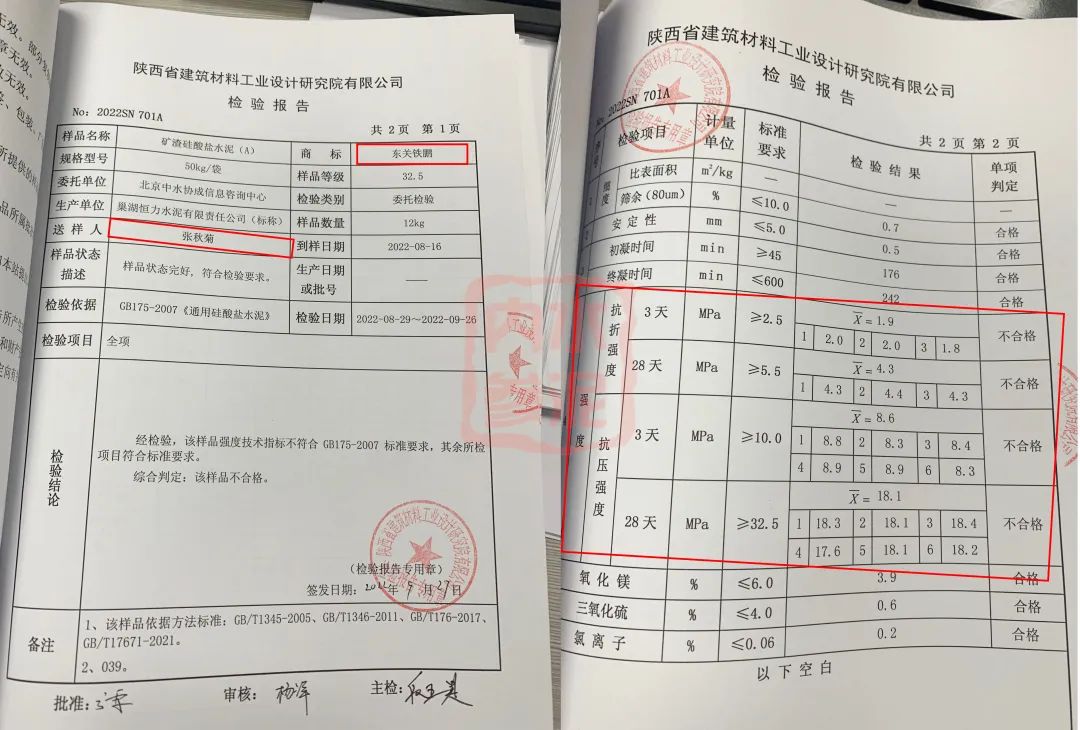 无效。部分复
章无效。
无效。
包装、
所提供的样
品所属
陕西省建筑材料工业设计研究院有限公司
检 验 报 告
No: 2022SN 701A
共 2 页 第 1 页
样品名称 矿渣硅酸盐水泥（A） 商 标 东关铁鹏
规格型号 50kg/袋 样品等级 32.5
委托单位 北京中水协成信息咨询中心 检验类别 委托检验
生产单位 巢湖恒力水泥有限责任公司（标称） 样品数量 12kg
送 样 人 张秋菊 到样日期 2022-08-16
样品状态描述 样品状态完好，符合检验要求。 生产日期或批号 ——
检验依据 GB175-2007《通用硅酸盐水泥》 检验日期 2022-08-29～2022-09-26
检验项目 全项
检验结论
经检验，该样品强度技术指标不符合 GB175-2007 标准要求，其余所检
项目符合标准要求。
综合判定：该样品不合格。
（检验报告专用章）
签发日期：2022年9月27日
备注
1、该样品依据方法标准：GB/T1345-2005、GB/T1346-2011、GB/T176-2017、
GB/T17671-2021。
2、039。
批准： 审核： 主检：
陕西省建筑材料工业设计研究院有限公司
检 验 报 告
No: 2022SN 701A
共 2 页 第 2 页
序号 检验项目 计量单位 标准要求 检 验 结 果 单项判定
细度 比表面积 m²/kg — — —
筛余（80um） % ≤10.0 0.7 合格
安 定 性 mm ≤5.0 0.5 合格
初凝时间 min ≥45 176 合格
终凝时间 min ≤600 242 合格
强度
抗折强度 3 天 MPa ≥2.5 X̄=1.9 不合格
1 2.0 2 2.0 3 1.8
28 天 MPa ≥5.5 X̄=4.3 不合格
1 4.3 2 4.4 3 4.3
抗压强度 3 天 MPa ≥10.0 X̄=8.6 不合格
1 8.8 2 8.3 3 8.4
4 8.9 5 8.9 6 8.3
28 天 MPa ≥32.5 X̄=18.1 不合格
1 18.3 2 18.1 3 18.4
4 17.6 5 18.1 6 18.2
氧 化 镁 % ≤6.0 3.9 合格
三氧化硫 % ≤4.0 0.6 合格
氯 离 子 % ≤0.06 0.2 合格
以 下 空 白